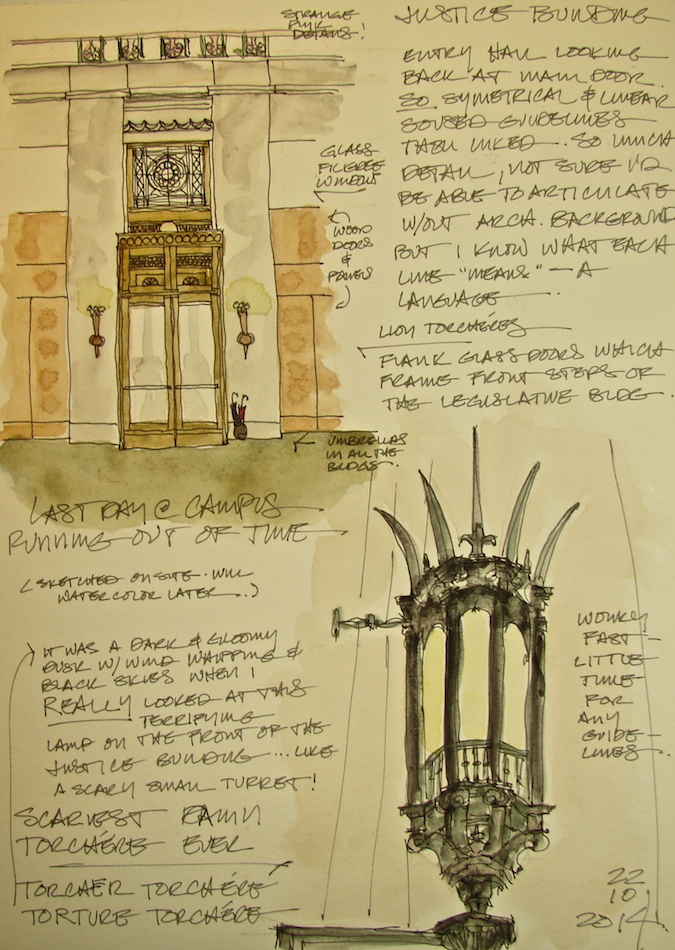 STRANGE
PINK
DETAILS!
JUSTICE BUILDING
ENTRY HALL LOOKING
BACK AT MAIN DOOR.
SO SYMETRICAL & LINEAR
SO USED GUIDELINES
THEN INKED. SO MUCH
DETAIL, NOT SURE I'D
BE ABLE TO ARTICULATE
W/OUT ARCH. BACKGROUND
BUT I KNOW WHAT EACH
LINE "MEANS" - A
LANGUAGE
GLASS
FILEREE
WINDOW
WOOD
DOORS
&
PANELS
LION TORCHÉRES
FLANK GLASS DOORS WHICH
FRAME FRONT STEPS OF
THE LEGISLATIVE BLDG.
UMBRELLAS
IN ALL THE
BLDGS.
LAST DAY @ CAMPUS
RUNNING OUT OF TIME
(SKETCHED ON SITE. WILL
WATERCOLOR LATER..)
IT WAS A DARK & GLOOMY
DUSK W/ WIND WHIPPING &
BLACK SKIES WHEN I
REALLY LOOKED AT THIS
TERRIFYING
LAMP ON THE FRONT OF THE
JUSTICE BUILDING... LIKE
A SCARY SMALL TURRET!
SCARIEST DAMN
TORCHÉRE EVER
TORCHER TORCHÉRE
TORTURE TORCHÉRE
WONKY
FAST -
LITTLE
TIME
FOR
ANY
GUIDE-
LINES.
22
10
2014